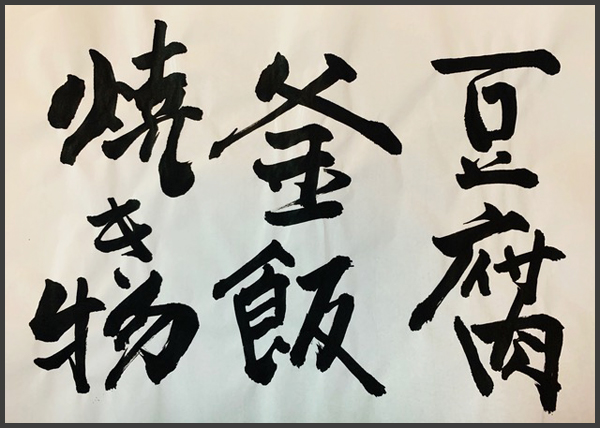 豆腐
釜飯
焼き物